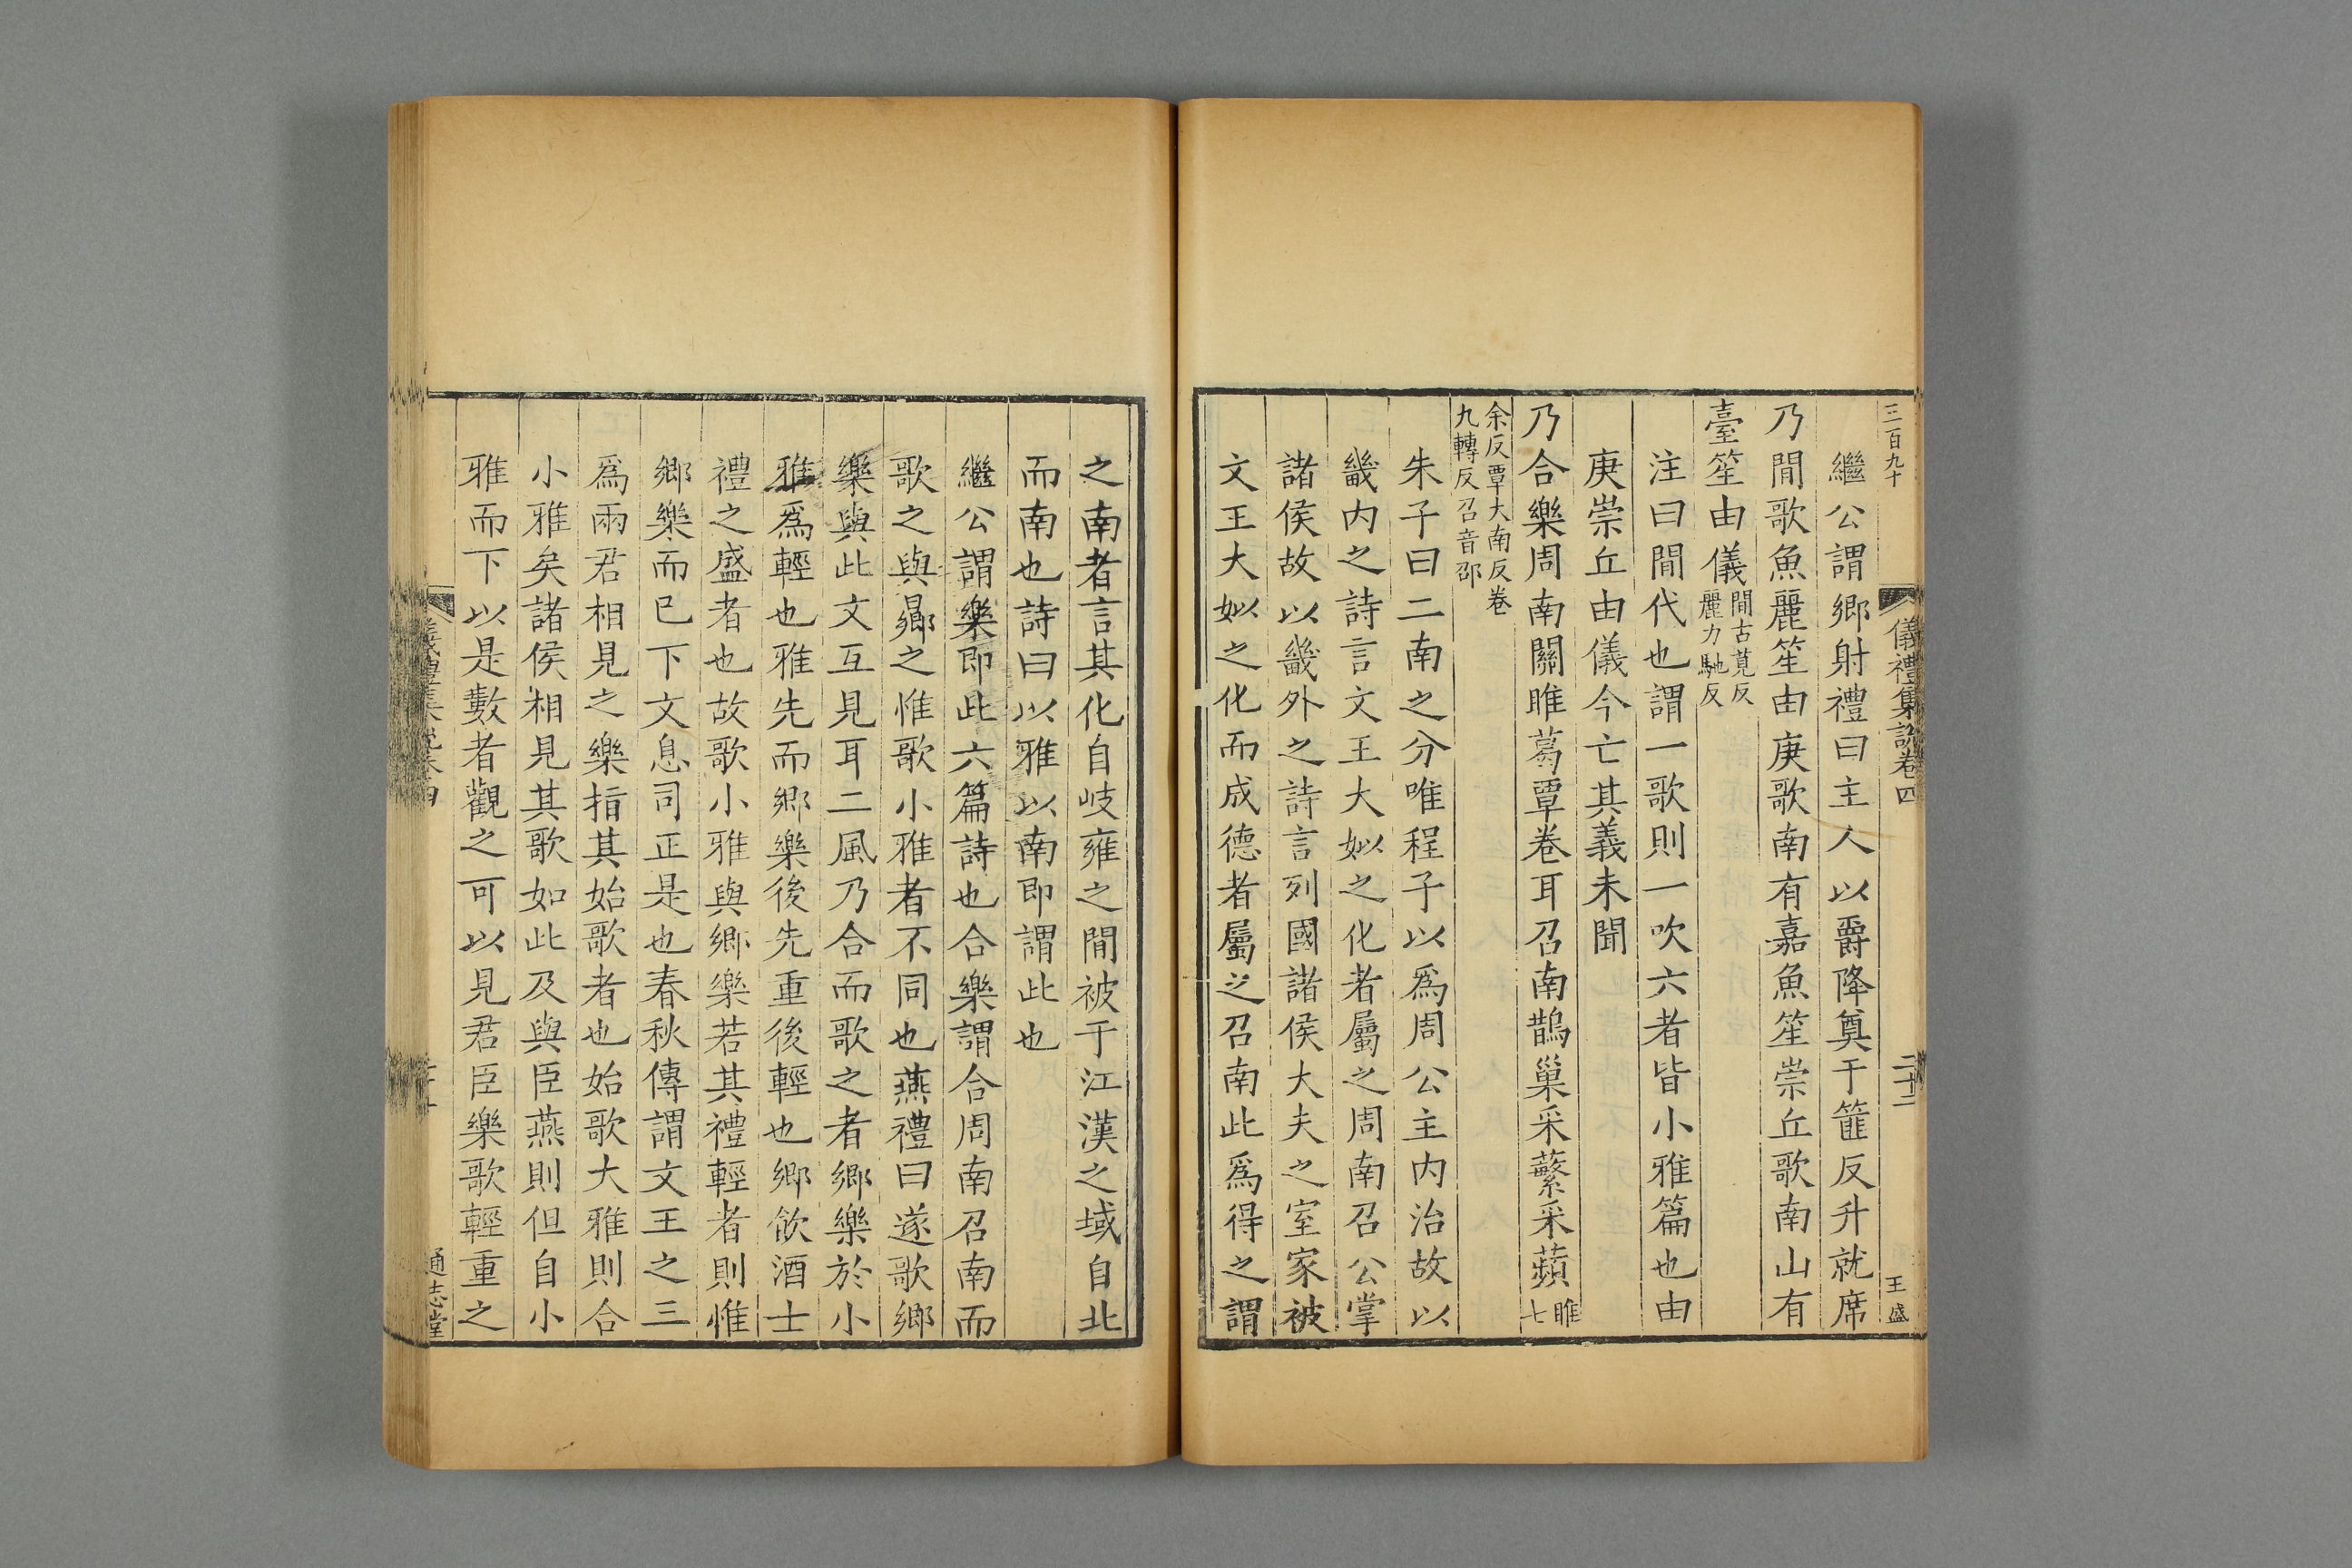 三百九十
儀禮集說卷四
二十二
王盛
繼公謂鄉射禮曰主人以爵降奠于篚反升就席
乃間歌魚麗笙由庚歌南有嘉魚笙崇丘歌南山有
臺笙由儀間古莧反麗力馳反
注曰間代也謂一歌則一吹六者皆小雅篇也由
庚崇丘由儀今亡其義未聞
乃合樂周南關雎葛覃卷耳召南鵲巢采蘩采蘋雎七
余反覃大南反卷九轉反召音邵
朱子曰二南之分唯程子以爲周公主內治故以
畿內之詩言文王大姒之化者屬之周南召公掌
諸侯故以畿外之詩言列國諸侯大夫之室家被
文王大姒之化而成德者屬之召南此爲得之謂
之南者言其化自岐雍之間被于江漢之域自北
而南也詩曰以雅以南即謂此也
繼公謂樂即此六篇詩也合樂謂合周南召南而
歌之與鄉之惟歌小雅者不同也燕禮曰遂歌鄉
樂與此文互見耳二風乃合而歌之者鄉樂於小
雅爲輕也雅先而鄉樂後先重後輕也鄉飲酒士
禮之盛者也故歌小雅與鄉樂若其禮輕者則惟
鄉樂而已下文息司正是也春秋傳謂文王之三
爲兩君相見之樂指其始歌者也始歌大雅則合
小雅矣諸侯相見其歌如此及與臣燕則但自小
雅而下以是數者觀之可以見君臣樂歌輕重之
通志堂